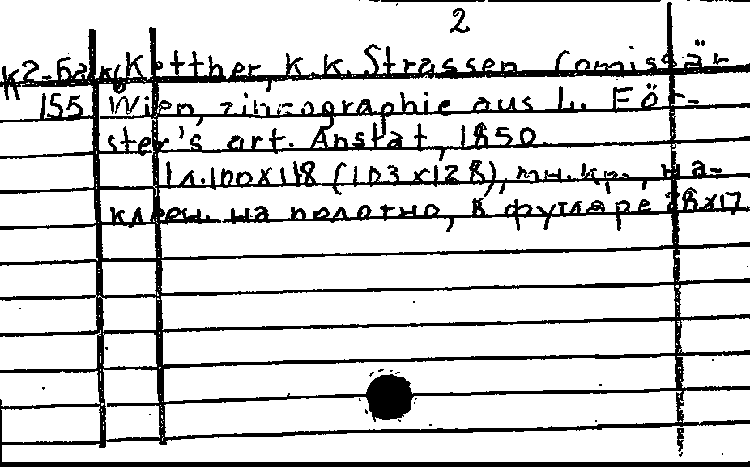 2
К2-Бал/6 Ketther, K.K. Strassen Comissär
155 Wien, zincographie aus L. För-
ster's art. Anstat, 1850.
1 л. 100x118 (103x128), мн. кр., на-
клеен. на полотно, в футляре 28x17